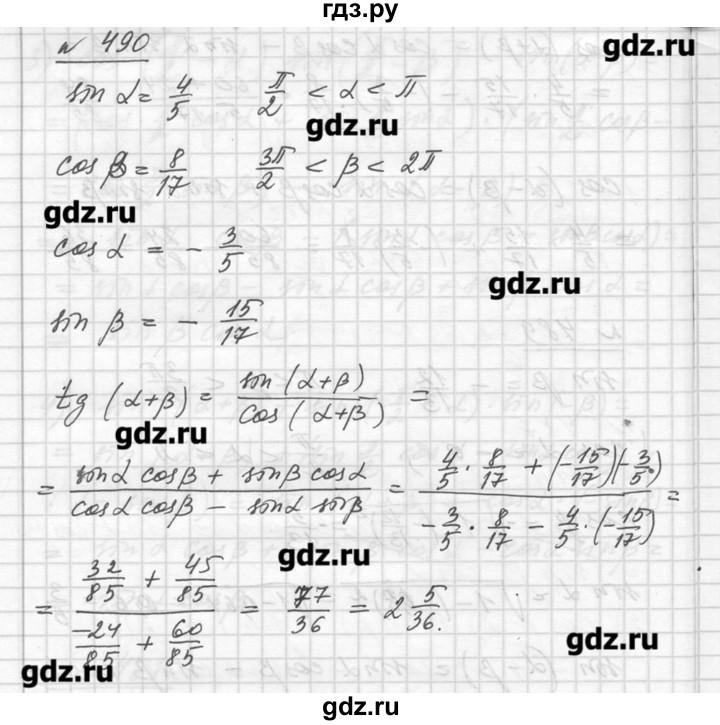 гдз.ру
№ 490
gdz.ru
sin α = 4/5   π/2 < α < π
gdz.ru
cos β = 8/17   3π/2 < β < 2π
gdz.ru
cos α = - 3/5
gdz.ru
sin β = - 15/17
tg (α+β) = sin(α+β)/cos(α+β) =
gdz.ru
= (sinα cosβ + sinβ cosα)/(cosα cosβ - sinα sinβ) = (4/5 · 8/17 + (-15/17)(-3/5))/(-3/5 · 8/17 - 4/5 · (-15/17)) =
gdz.ru
= (32/85 + 45/85)/(-24/85 + 60/85) = 77/36 = 2 5/36.
gdz.ru
gdz.ru
gdz.ru